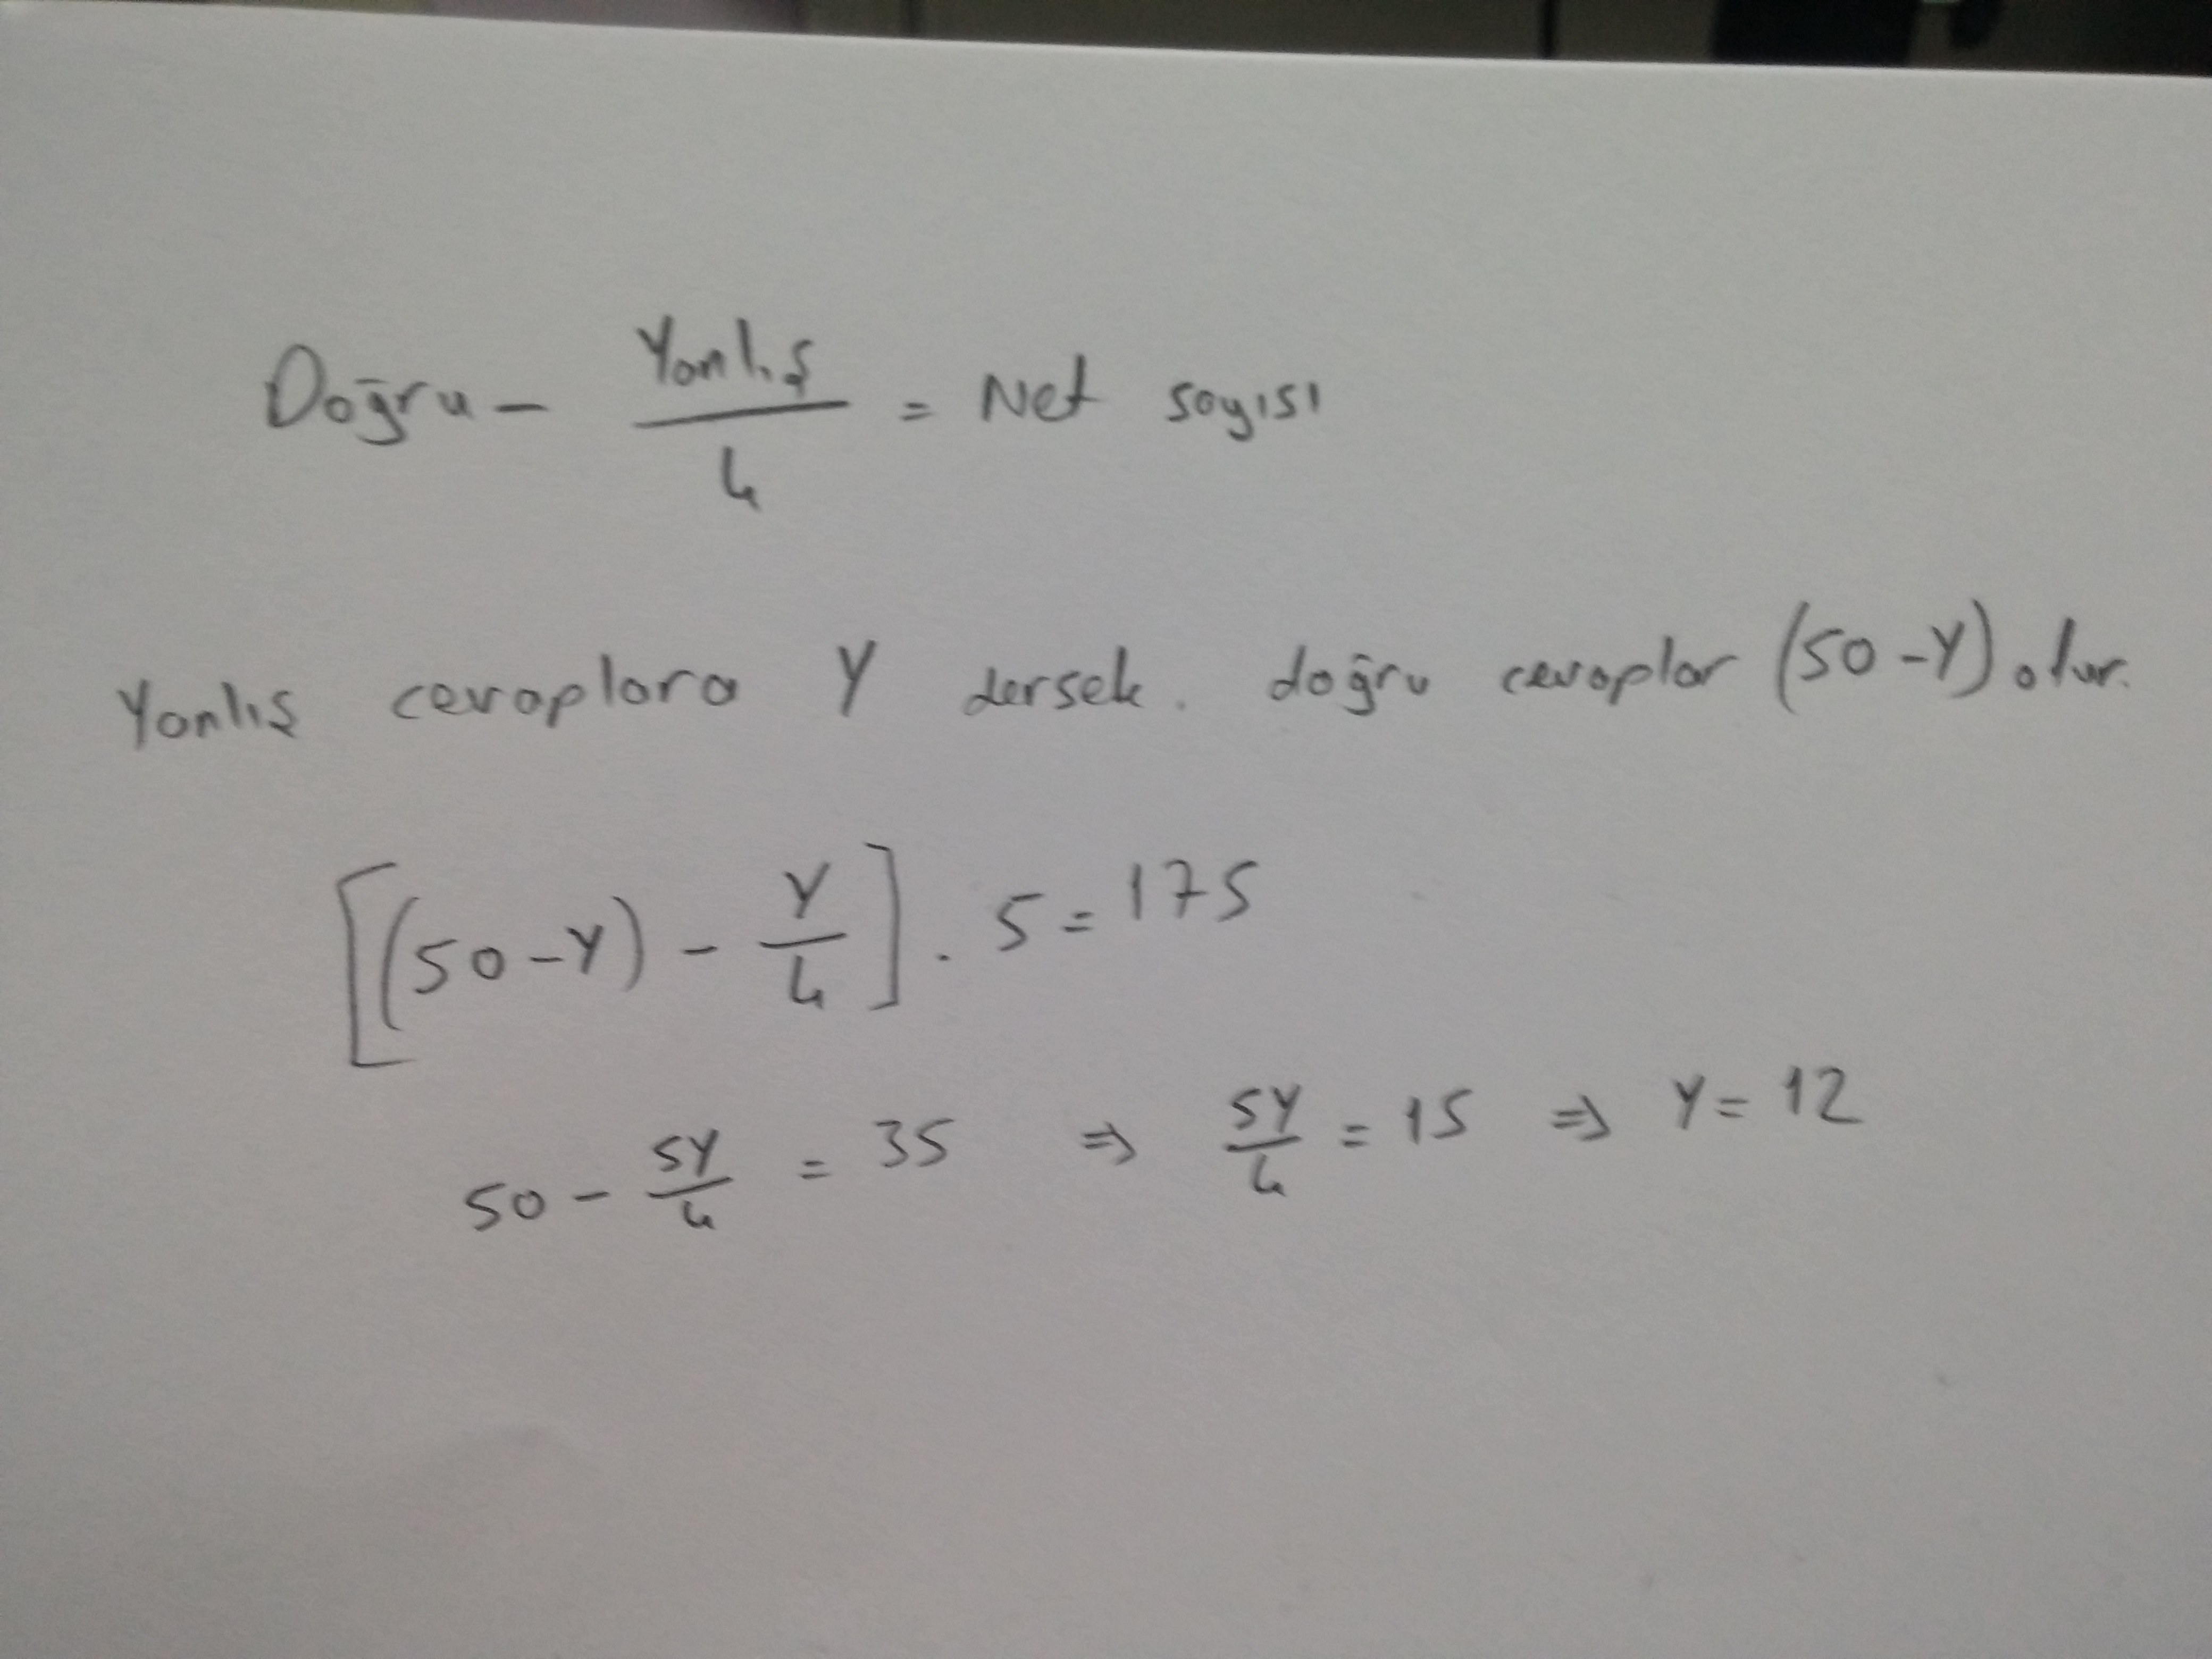 Doğru - Yanlış / 4 = Net sayısı
Yanlış cevaplara Y dersek. doğru cevaplar (50-Y) olur.
[(50-Y) - Y/4] . 5 = 175
50 - 5Y/4 = 35 ⇒ 5Y/4 = 15 ⇒ Y = 12